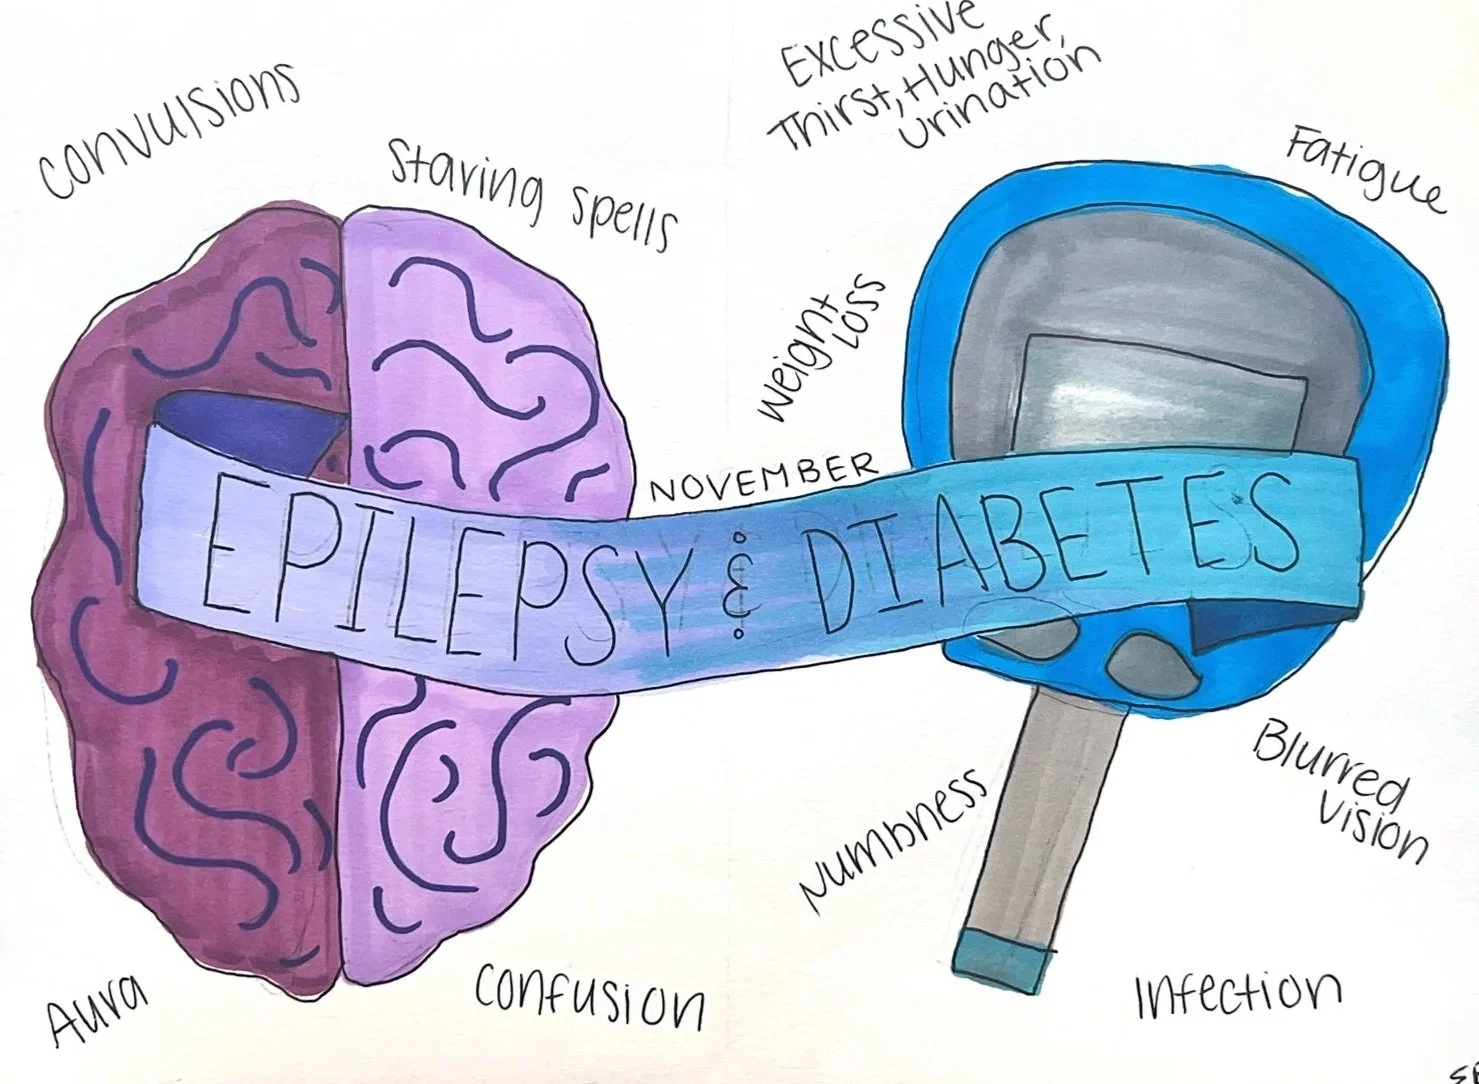 Convulsions
Staring spells
Excessive
Thirst, Hunger,
Urination
Fatigue
Weight
Loss
NOVEMBER
EPILEPSY & DIABETES
Numbness
Blurred
Vision
Aura
Confusion
Infection